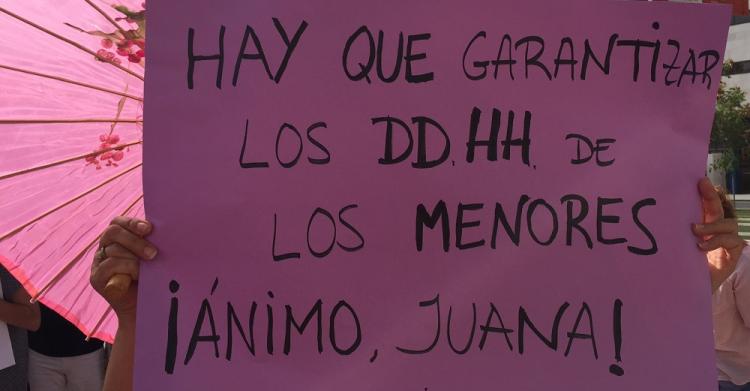 HAY QUE GARANTIZAR
LOS DD.HH. DE
LOS MENORES
¡ÁNIMO, JUANA!